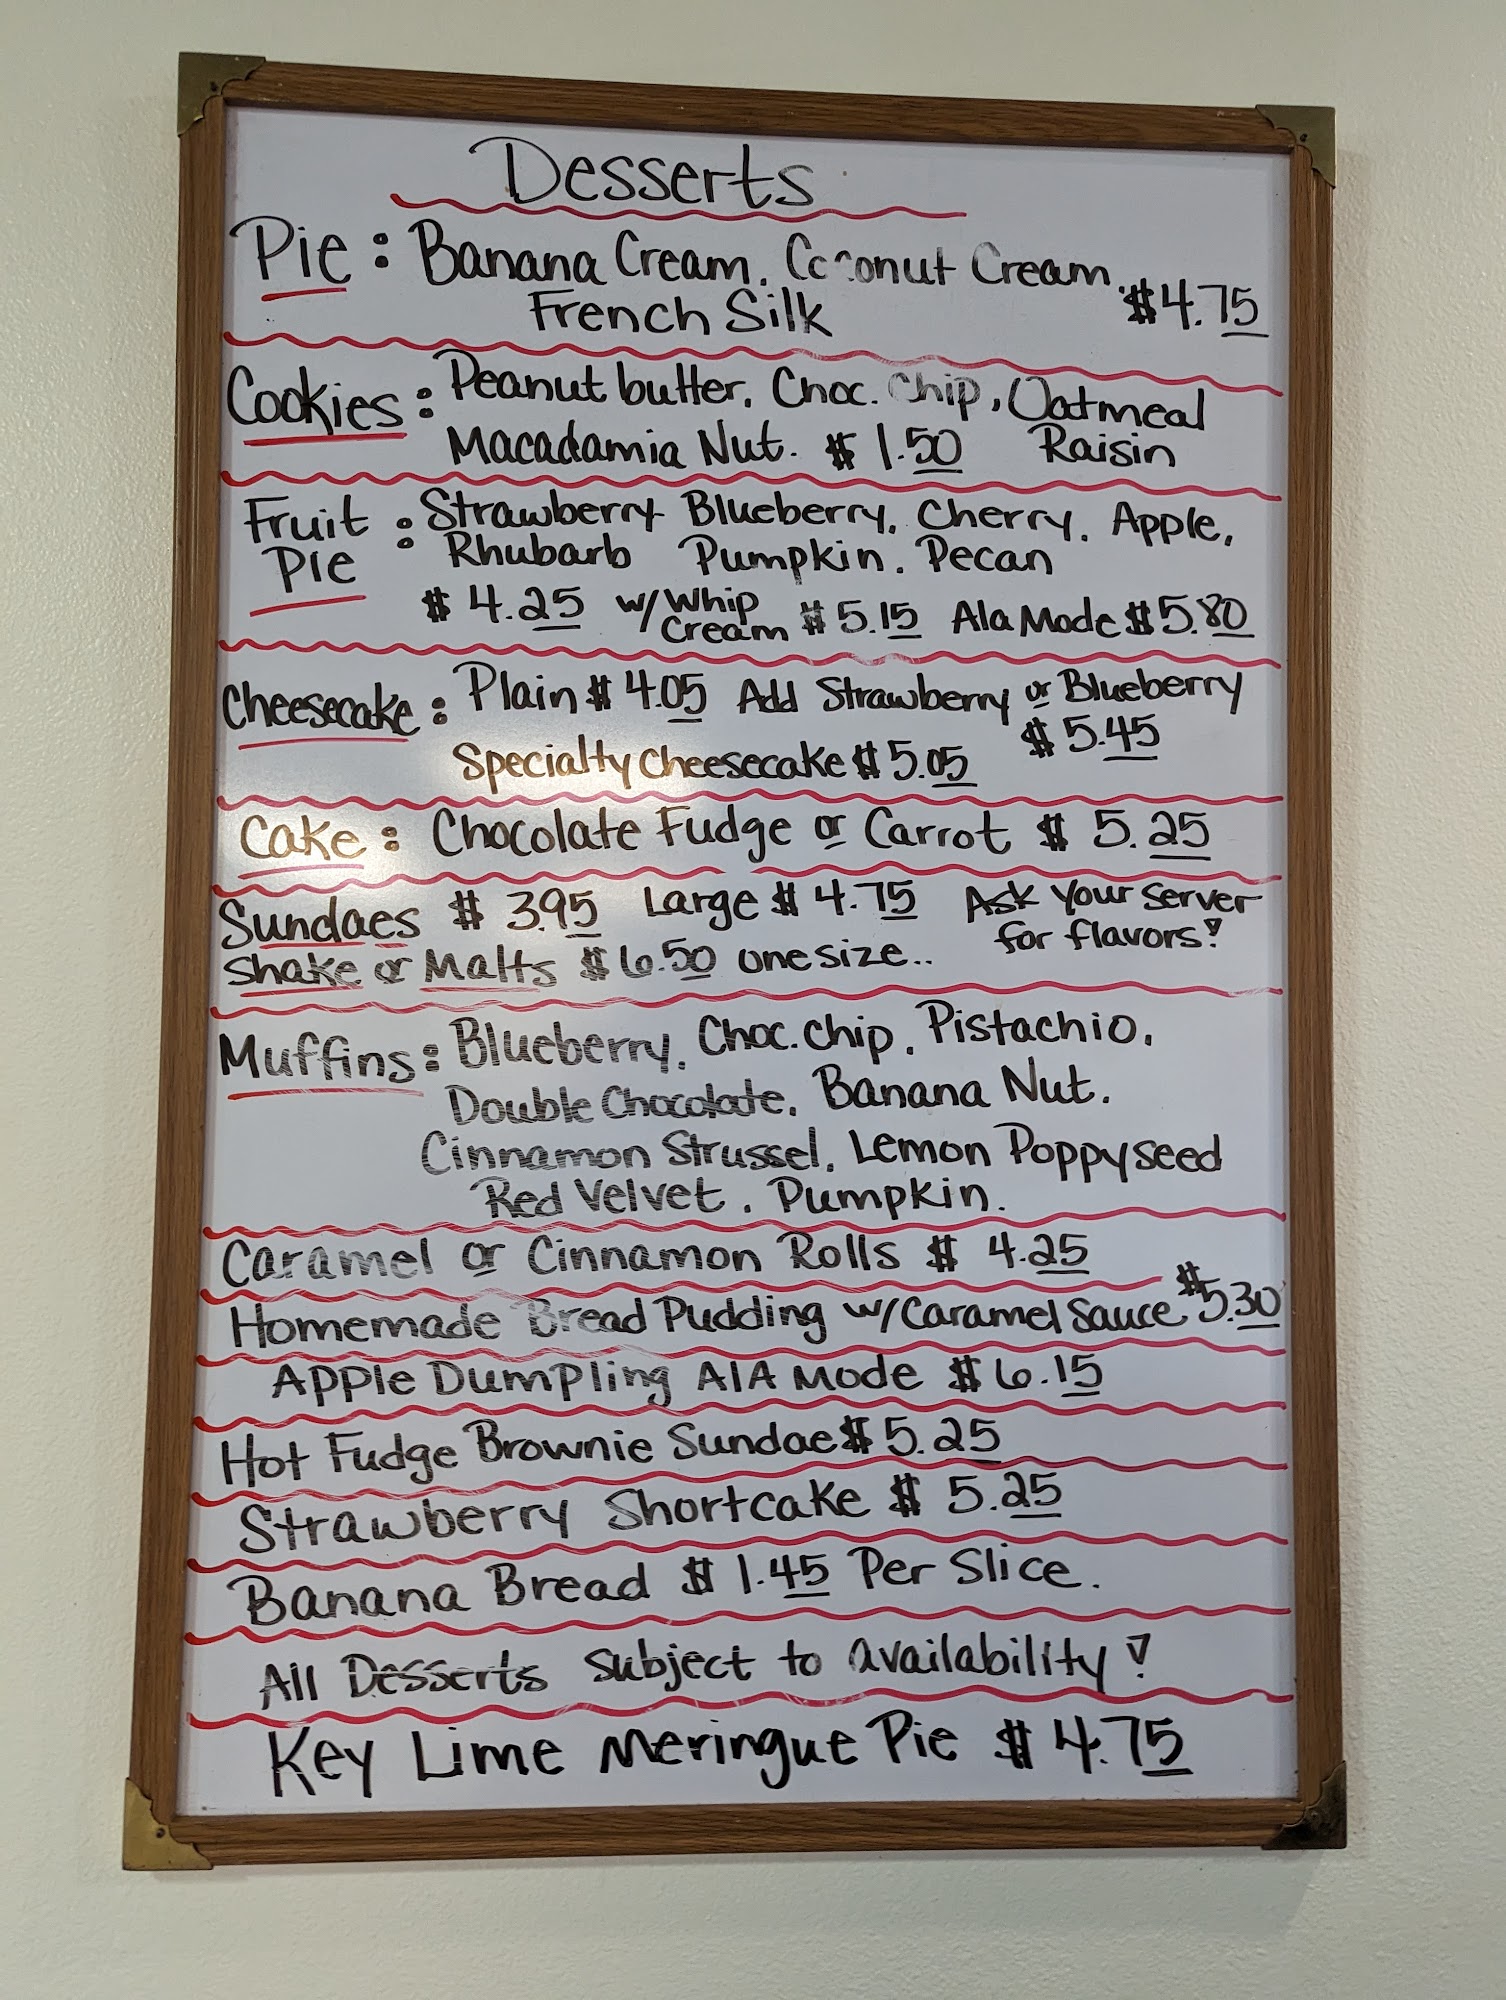 Desserts
Pie: Banana Cream, Coconut Cream,
French Silk $4.75
Cookies: Peanut butter, Choc. Chip, Oatmeal
Macadamia Nut. $1.50 Raisin
Fruit Pie: Strawberry Blueberry, Cherry, Apple,
Rhubarb Pumpkin, Pecan
$4.25 w/ Whip Cream $5.15 Ala Mode $5.80
Cheesecake: Plain $4.05 Add Strawberry or Blueberry
$5.45
Specialty Cheesecake $5.05
Cake: Chocolate Fudge or Carrot $5.25
Sundaes $3.95 Large $4.75 Ask Your Server
for flavors!
Shake or Malts $6.50 one size..
Muffins: Blueberry, Choc. Chip, Pistachio,
Double Chocolate, Banana Nut.
Cinnamon Strussel, Lemon Poppyseed
Red Velvet, Pumpkin.
Caramel or Cinnamon Rolls $4.25
Homemade Bread Pudding w/ Caramel Sauce $5.30
Apple Dumpling AlA Mode $6.15
Hot Fudge Brownie Sundae $5.25
Strawberry Shortcake $5.25
Banana Bread $1.45 Per Slice.
All Desserts subject to availability!
Key Lime Meringue Pie $4.75